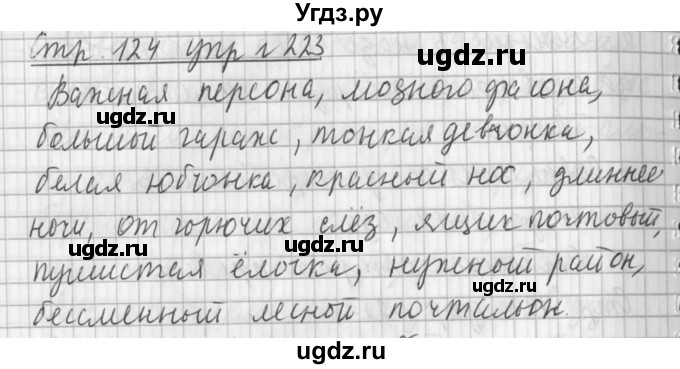 Угдз.ру
Стр. 124 упр г 223
Важная персона, модного фасона,
ugdz.ru ugdz.ru
большой гараж, тонкая девчонка,
белая юбчонка, красный нос, длиннее
ugdz.ru
ночи, от горючих слёз, ящик почтовый,
ugdz.ru ugdz.ru
пушистая ёлочка, нужный район,
ugdz.ru
бессменный лесной почтальон.
ugdz.ru